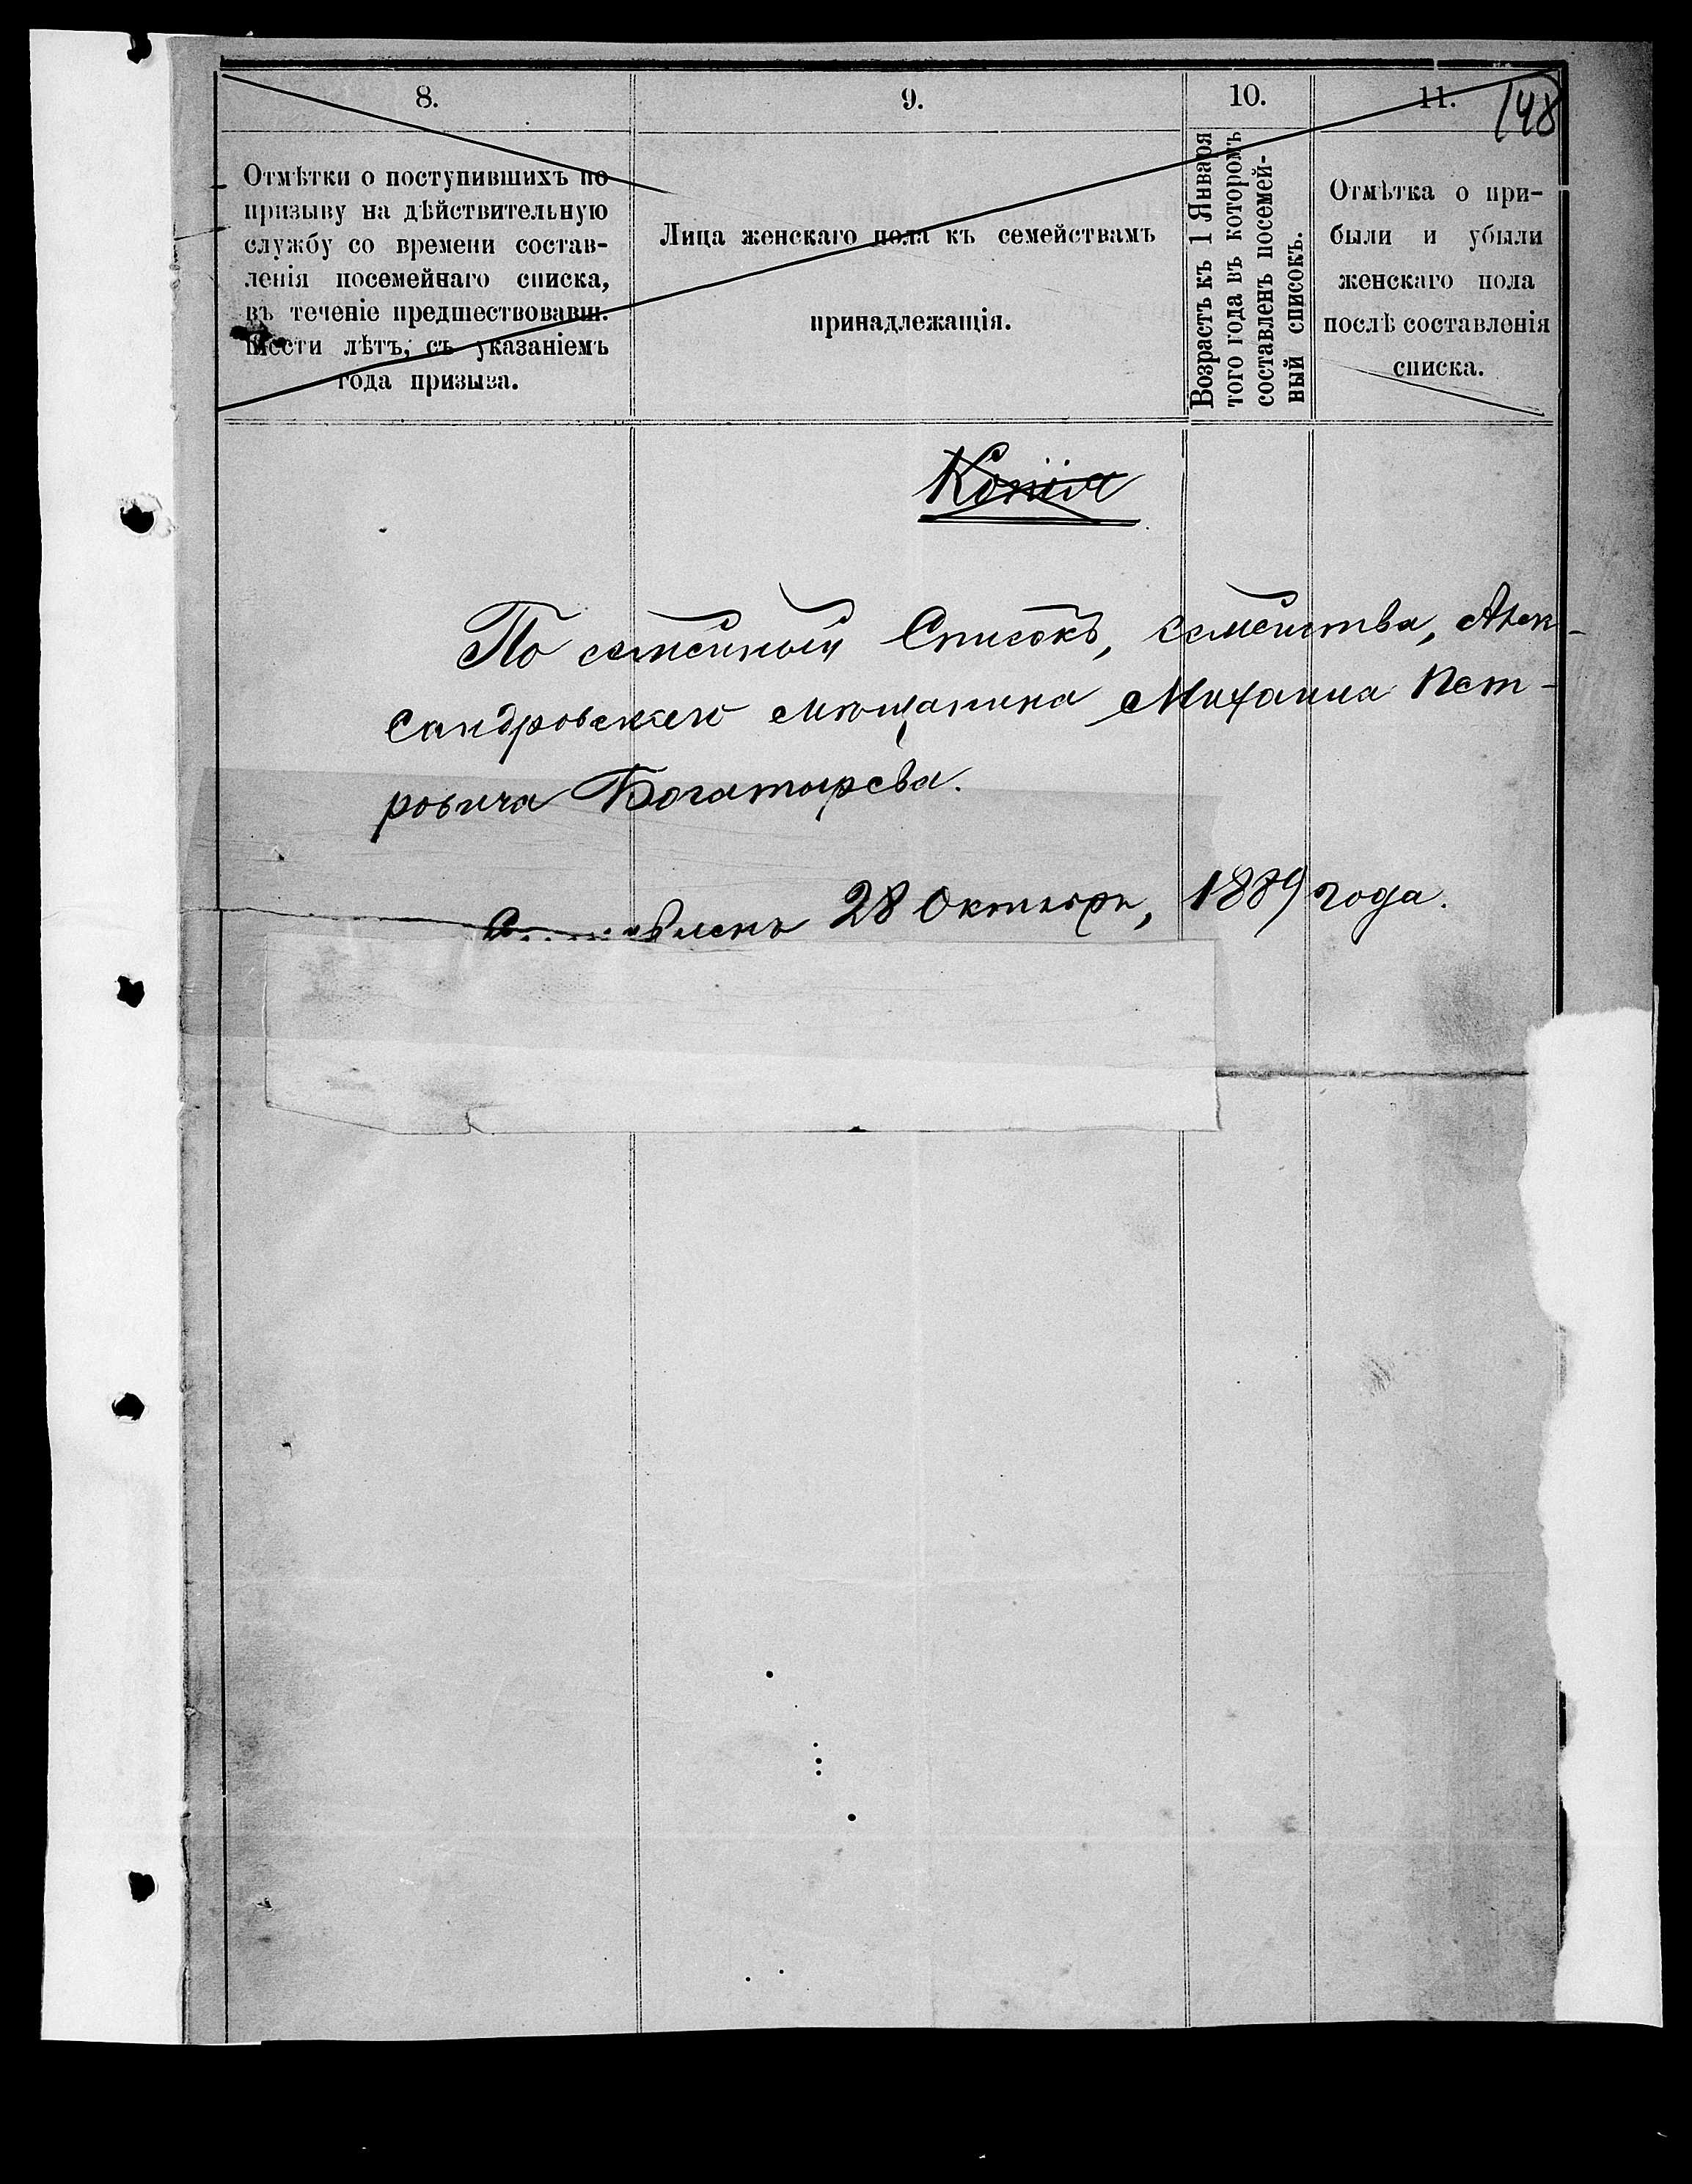 8.
9.
10.
11.
148
Отмѣтки о поступившихъ по
призыву на дѣйствительную
службу со времени состав-
ленія посемейнаго списка,
въ теченіе предшествовавш.
шести лѣтъ, съ указаніемъ
года призыва.
Лица женскаго пола къ семействамъ
принадлежащія.
Возрастъ къ 1 Января
того года въ которомъ
составленъ посемей-
ный списокъ.
Отмѣтка о при-
были и убыли
женскаго пола
послѣ составленія
списка.
Копія
По семейный Списокъ, Семейства, Алек-
сандровскаго мющанина Михаила Пет-
ровича Богатырева.
28 Октября, 1889 года.